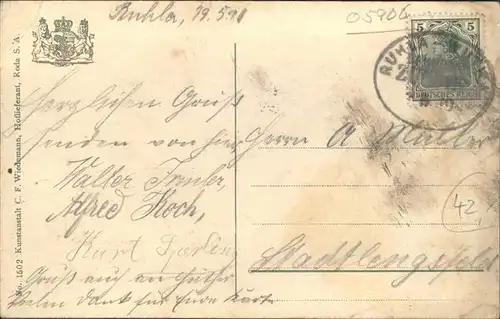 Ruhla, 19.5.
05906
5 5
DEUTSCHES REICH
RUH
Herzlichen Gruß
senden von hier
Walter
Alfred Koch,
Kurt
Gruß auch an
Vielen Dank für Eure Karte
Herrn A Müller
Stadtlengsfeld
42
No. 1502 Kunstanstalt C. F. Wiedemann, Hoflieferant, Roda S.-A.